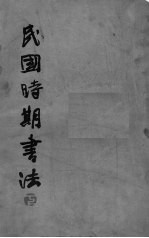 民國時期書法